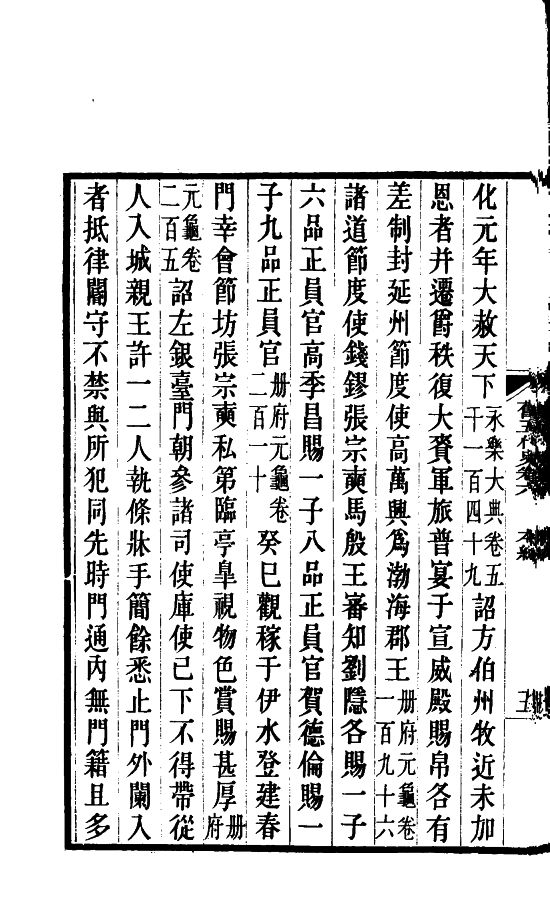 化元年大赦天下永樂大典卷五千一百四十九詔方伯州牧近未加
恩者并遷爵秩復大賚軍旅普宴于宣威殿賜帛各有
差制封延州節度使高萬興爲渤海郡王册府元龜卷一百九十六
諸道節度使錢鏐張宗奭馬殷王審知劉隱各賜一子
六品正員官高季昌賜一子八品正員官賀德倫賜一
子九品正員官册府元龜卷二百一十癸巳觀稼于伊水登建春
門幸會節坊張宗奭私第臨亭臯視物色賞賜甚厚册府
元龜卷二百五詔左銀臺門朝參諸司使庫使已下不得帶從
人入城親王許一二人執條牀手簡餘悉止門外闌入
者抵律閽守不禁與所犯同先時門通內無門籍且多
舊五代史卷六
五